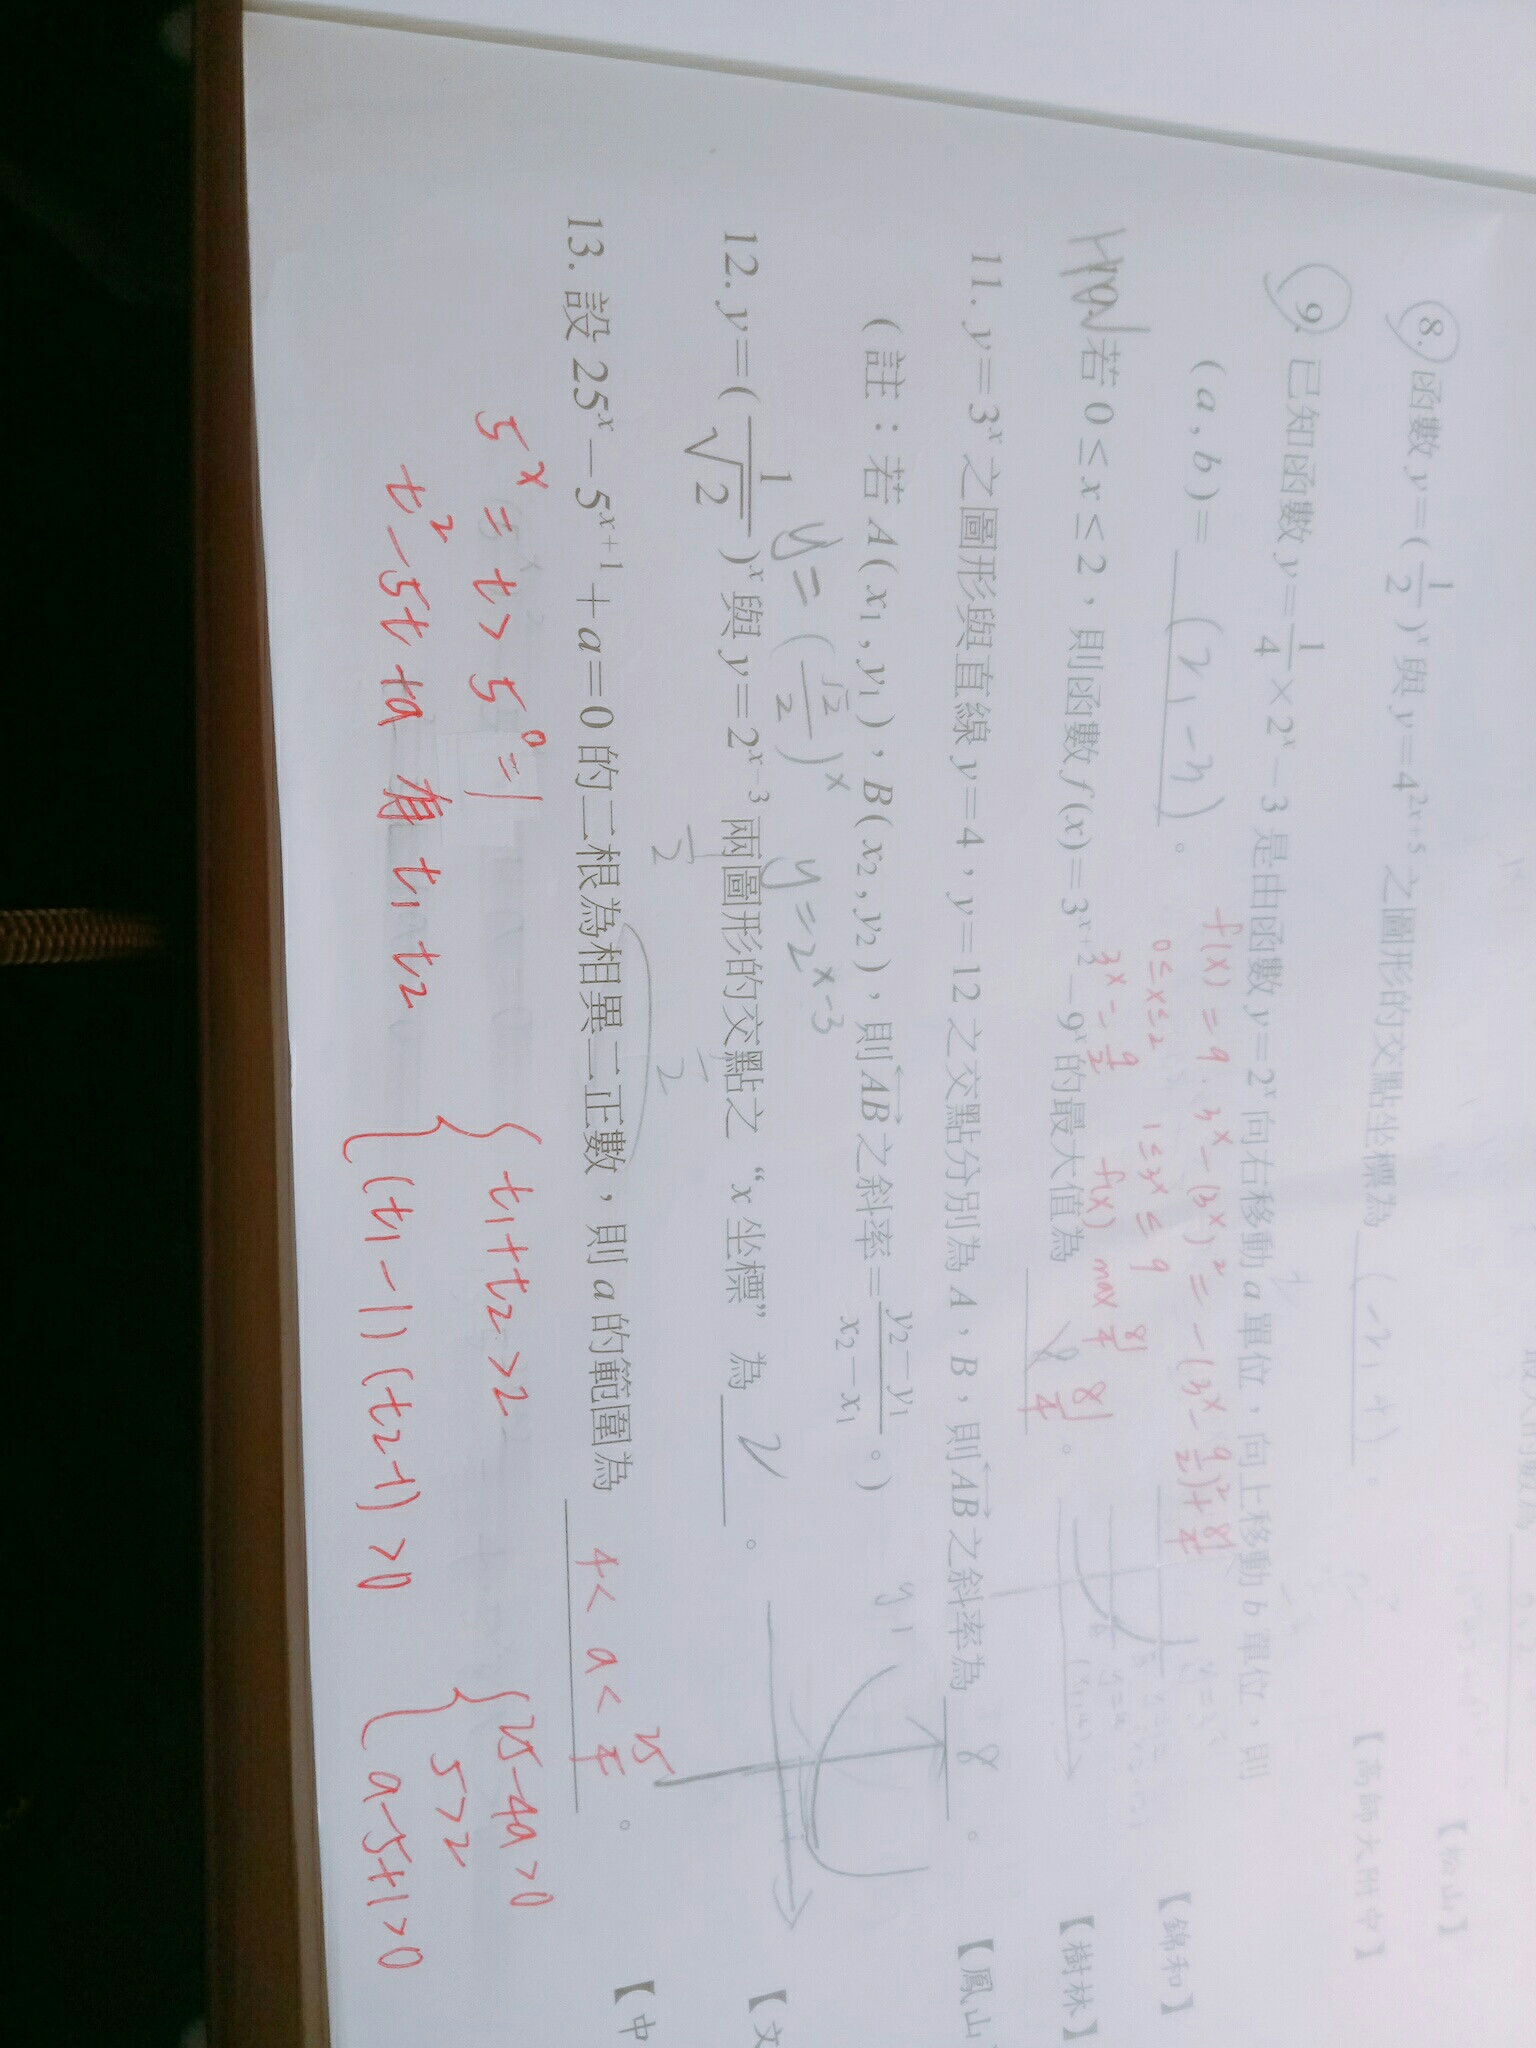 8. 函數 y=(1/2)^x 與 y=4^{2x+5} 之圖形的交點坐標為 (-2, 4) 。
【松山】
9. 已知函數 y=1/4×2^x-3 是由函數 y=2^x 向右移動 a 單位，向上移動 b 單位，則
(a,b)= (2, -3) 。
【高師大附中】
f(x) = 9·3^x-(3^x)^2 = -(3^x-9/2)^2+81/4
0≤x≤2 1≤3^x≤9
3^x=9/2 f(x) max 81/4
若 0≤x≤2，則函數 f(x)=3^{x+2}-9^x 的最大值為 81/4 。
【錦和】
【樹林】
11. y=3^x 之圖形與直線 y=4，y=12 之交點分別為 A，B，則 AB 之斜率為 8 。
【鳳山
(註：若 A(x₁,y₁)，B(x₂,y₂)，則 AB 之斜率=(y₂-y₁)/(x₂-x₁)。)
y=(√2/2)^x y=2^{x-3}
12. y=(1/√2)^x 與 y=2^{x-3} 兩圖形的交點之“x 坐標”為 2 。
【文
13. 設 25^x-5^{x+1}+a=0 的二根為相異二正數，則 a 的範圍為 4<a<25/4 。
【中
5^x = t > 5^0 = 1
t^2-5t+a 有 t₁ t₂
{ t₁+t₂>2
(t₁-1)(t₂-1)>0
{ 25-4a>0
5>2
a-5+1>0